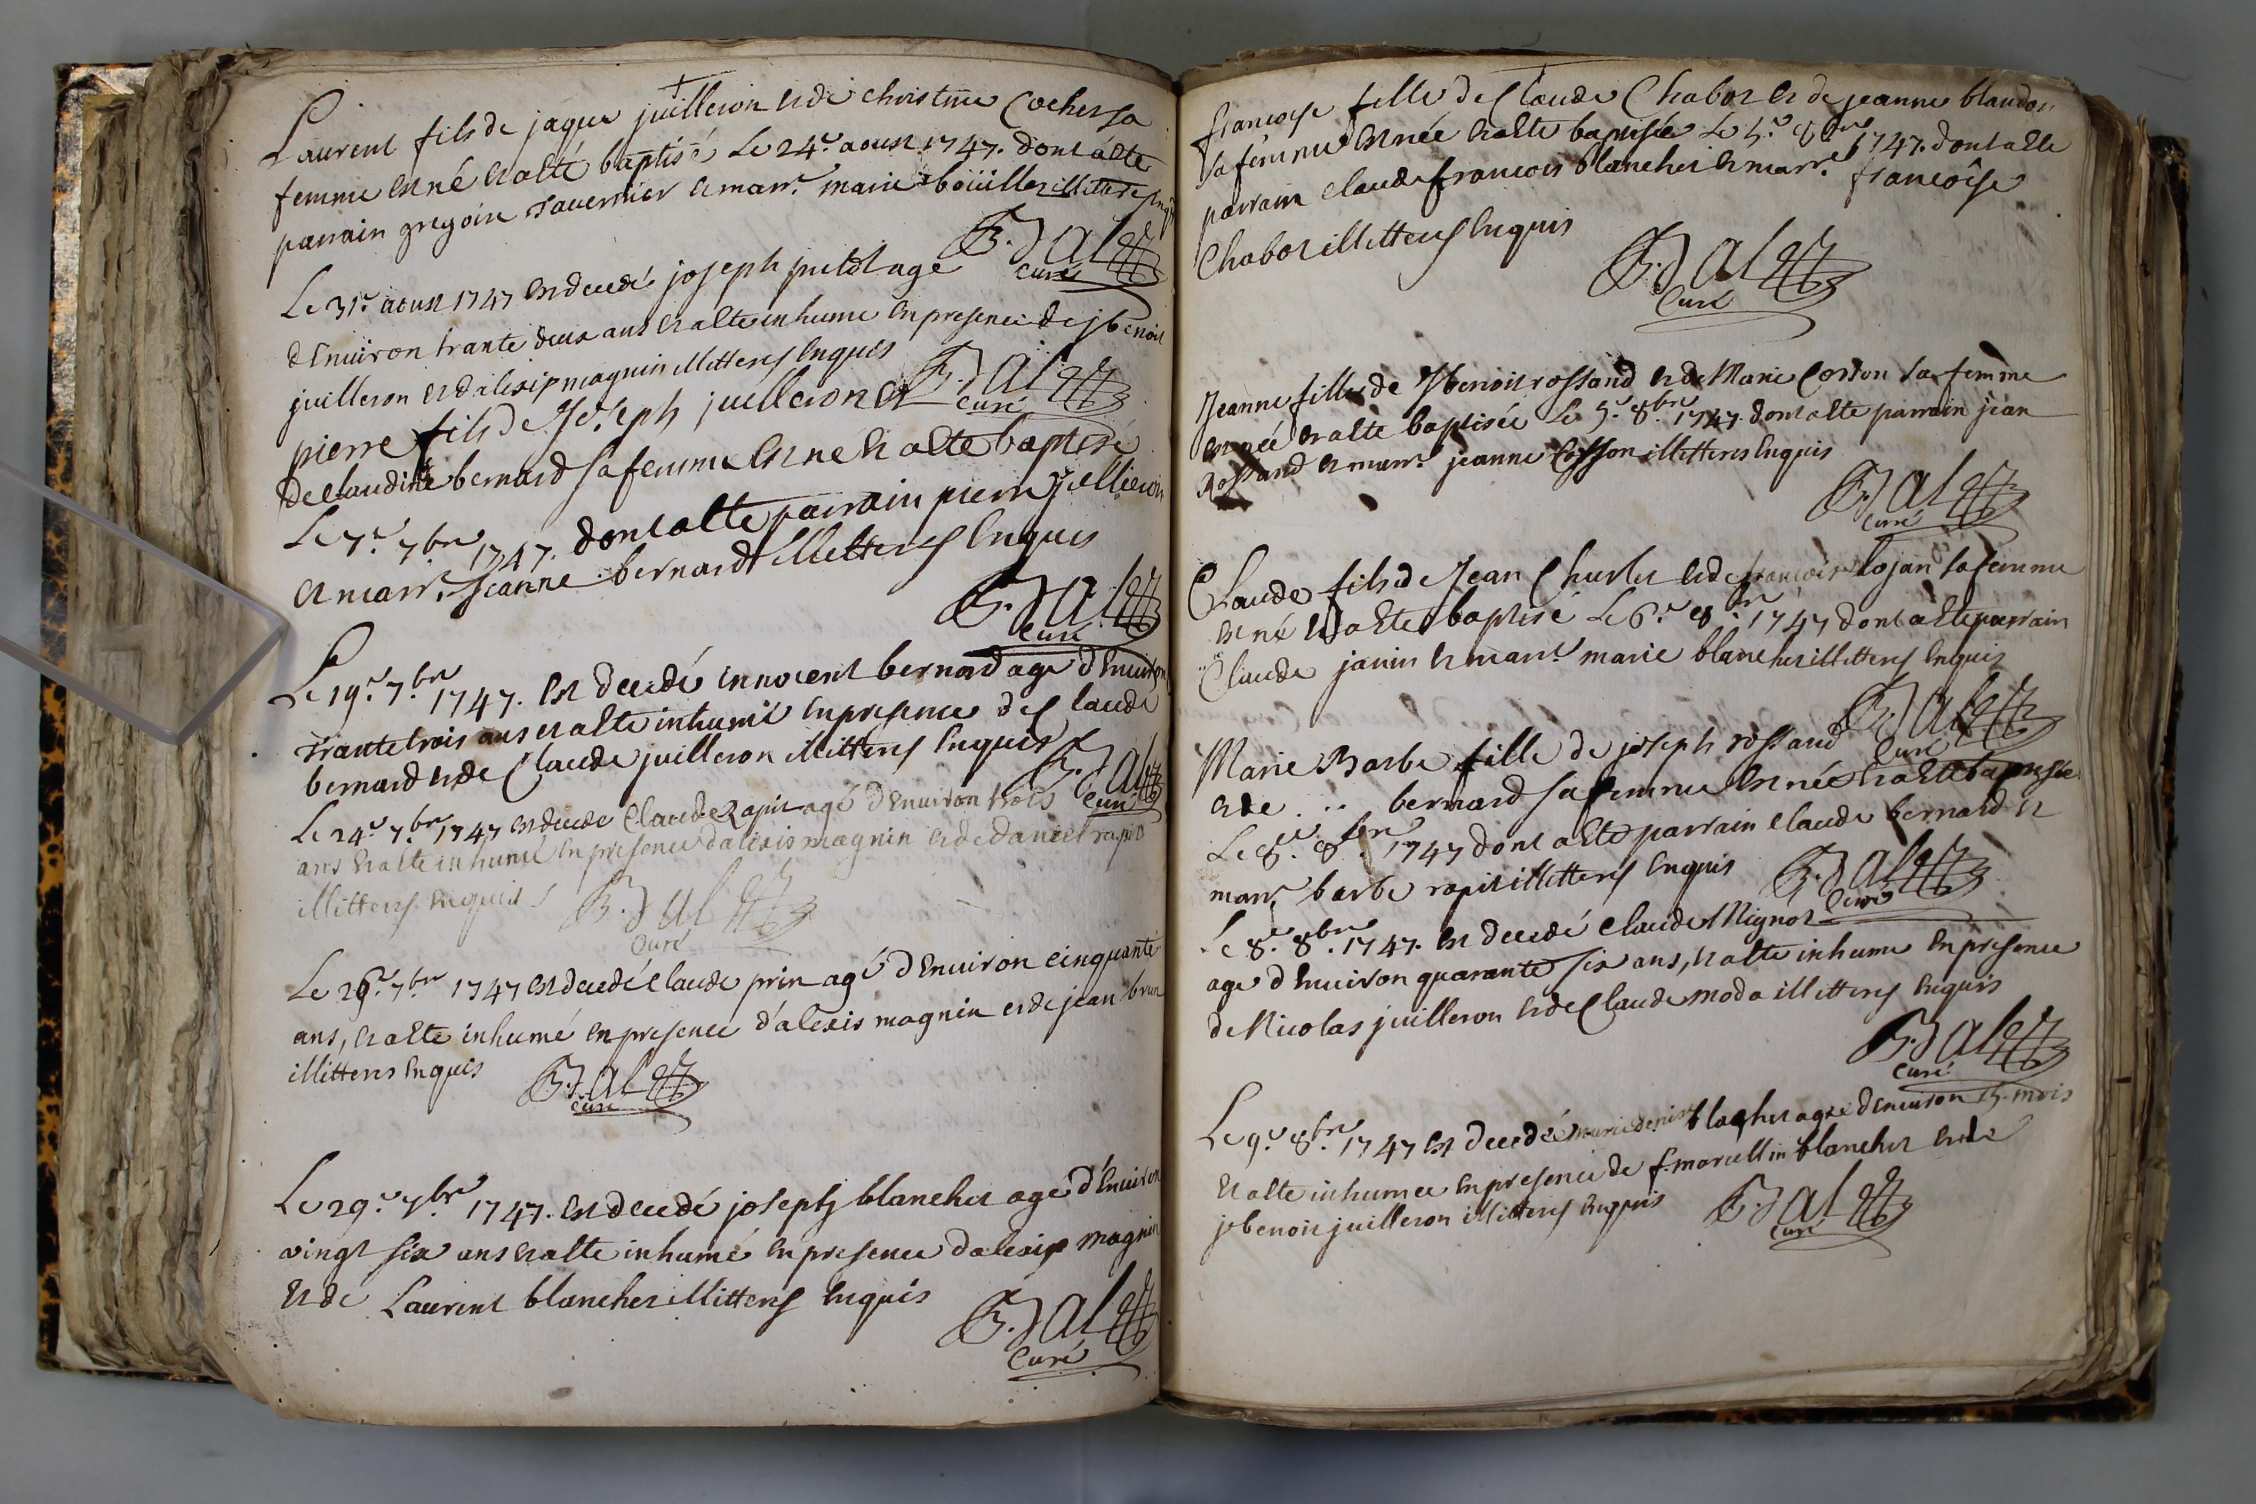 Laurent fils de jaque juilleron et de christine Cochet sa
femme est né et a été baptisé Le 24.e aoust 1747. dont acte
parrain gregoire Tavernier et marr.e marie bouillet illitterés enquis
B. Dal
curé
Le 31.e aoust 1747 est decedé joseph juillot agé
d'Environ trante deux ans et a été inhumé en presence de j benoit
juilleron et d'alexis magnin illitterés Enquis
B. Dal
curé
pierre fils de Joseph juilleron et
de claudine bernard sa femme Est né et a été baptisé
Le 7.e 7bre 1747. dont acte parrain pierre juilleron
et marr.e Jeanne bernard illitterés Enquis
B. Dal
curé
Le 19.e 7.bre 1747. est decedé innocent bernard agé d'Environ
Trante trois ans et a été inhumé En presence de Claude
bernard et de Claude juilleron illitterés Enquis
B. Dal
curé
Le 24.e 7.bre 1747 est decedé Claude Rapit agé d'Environ trois
ans et a été inhumé En presence d'alexis magnin et de daniel rapit
illitterés Enquis
B. Dal
Curé
Le 26.e 7.bre 1747 est decedé Claude prin agé d'Environ cinquante
ans, et a été inhumé en presence d'alexis magnin et de jean brun
illitterés Enquis
B. Dal
Curé
Le 29.e 7.bre 1747. est decedé joseph blanchet agé d'Environ
vingt six ans et a été inhumé En presence d'alexis magnin
Et de Laurent blanchet illitterés Enquis
B. Dal
Curé
francoise fille de Claude Chabot et de jeanne blandon
sa femme est née et a été baptisée Le 5.e 8bre 1747. dont acte
parrain claude francois blanchet et marr.e francoise
Chabot illitterés Enquis
B. Dal
Curé
Jeanne fille de J benoit rossand et de Marie Cosson sa femme
est née et a été baptisée Le 5.e 8bre 1747. dont acte parrain jean
Rossand et marr.e jeanne Cosson illitterés Enquis
B. Dal
curé
Claude fils de Jean Charlet et de francoise lojan sa femme
est né et a été baptisé Le 6.e 8.bre 1747 dont acte parrain
Claude janin et marr.e marie blanchet illitterés Enquis
B. Dal
Curé
Marie Barbe fille de joseph rossand
et de .. bernard sa femme Est née et a été baptisée
Le 8.e 8.bre 1747 dont acte parrain claude bernard et
marr.e barbe rapit illitterés Enquis
B. Dal
Curé
Le 8.e 8bre. 1747. est decedé claude Mignot
agé d'Environ quarante six ans, et a été inhumé En presence
de Nicolas juilleron et de Claude moda illitterés Enquis
B. Dal
Curé
Le 9.e 8bre. 1747 est decedée marie denise blanchet agée d'Environ 15. mois
Et a été inhumée En presence de f. marcellin blanchet et de
j benoit juilleron illitterés Enquis
B. Dal
curé